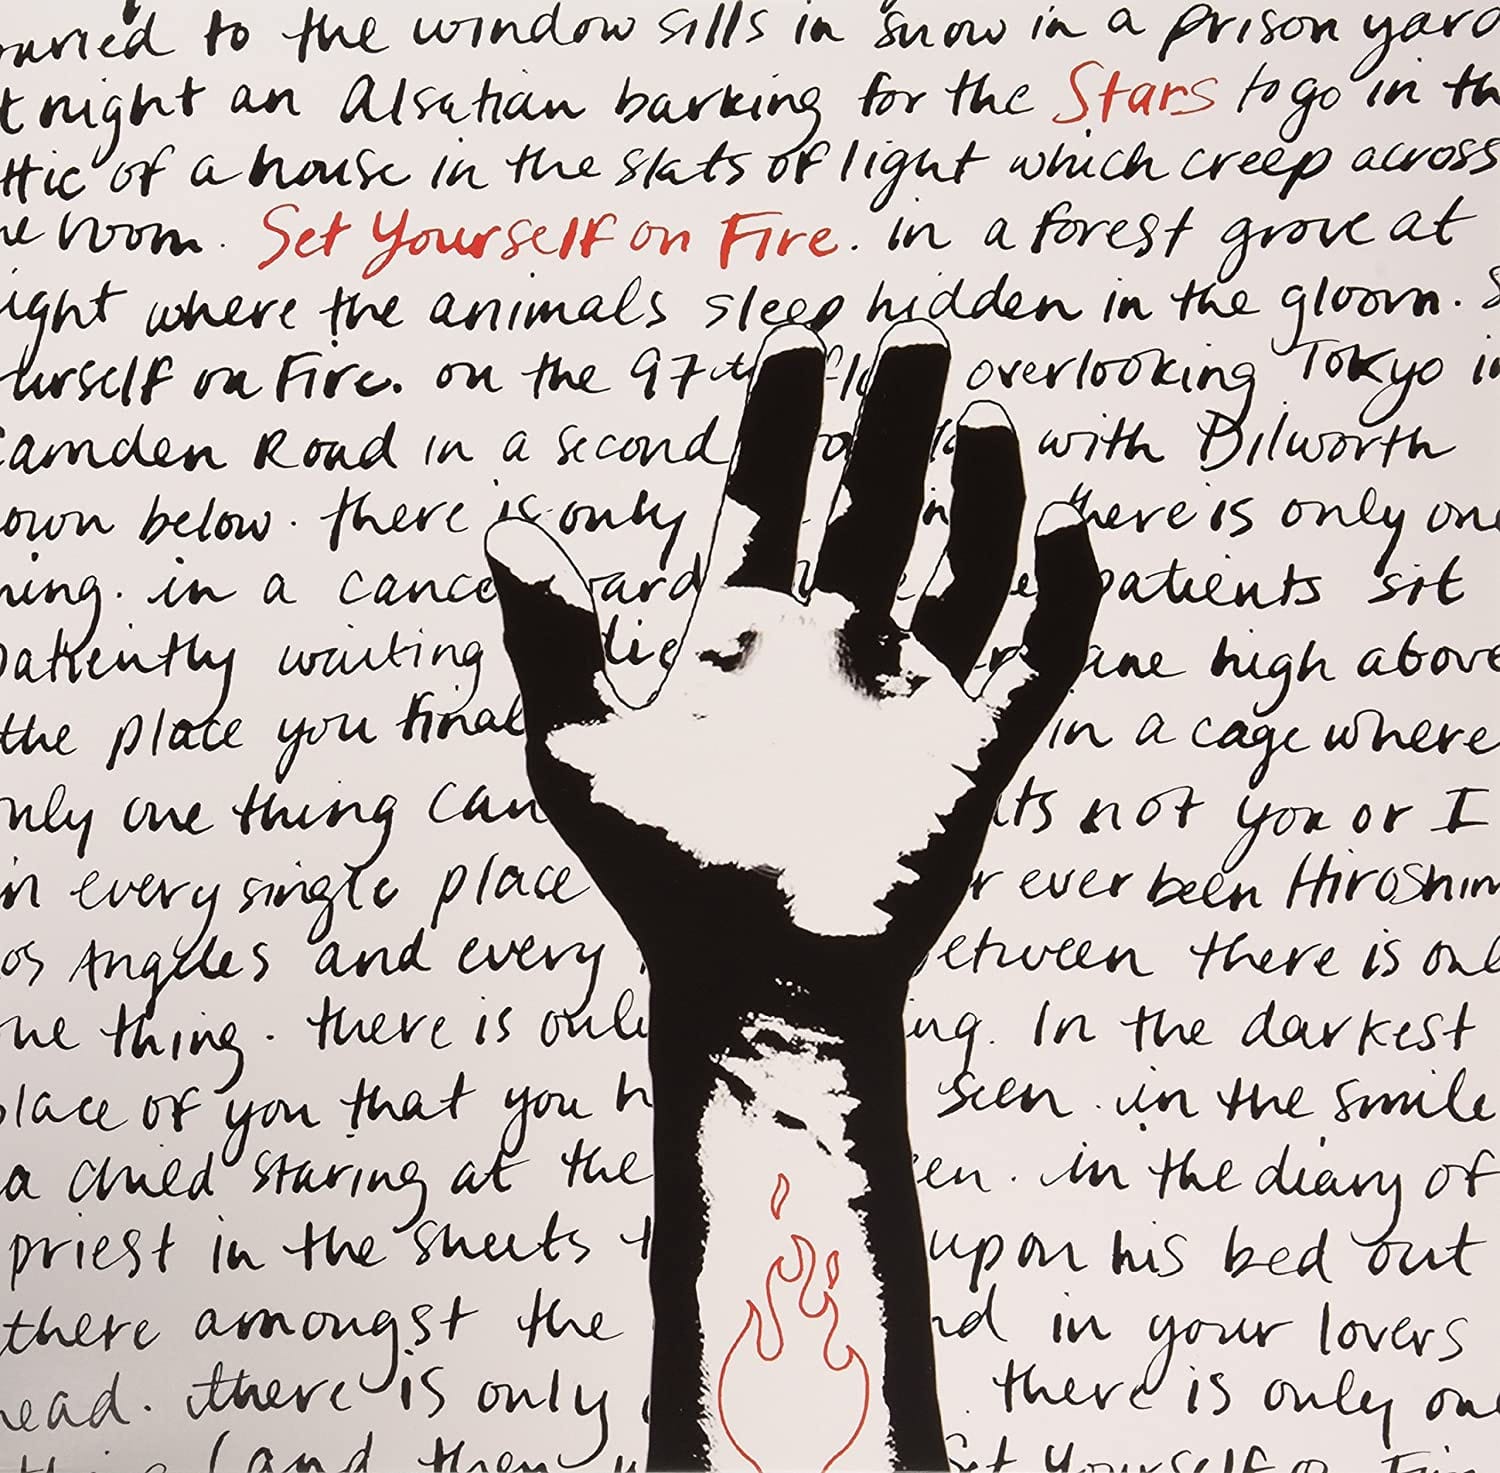 to the window sills in snow in a prison yard
night an Alsatian barking for the Stars to go in
of a house in the slats of light which creep across
room. Set Yourself on Fire. in a forest grove at
where the animals sleep hidden in the gloom.
on Fire. on the 97th overlooking Tokyo in
Camden Road in a second with Dilworth
below. there is only there is only one
in a patients sit
patiently waiting die high above
the place you in a cage where
only one thing can its not you or I
in every single place ever been
Angeles and every between there is
thing. there is In the darkest
place of you that you seen. in the smile
a child staring at the in the diary of
priest in the sheets upon his bed out
there amongst the in your lovers
head. there is only there is only
and then Set Yourself